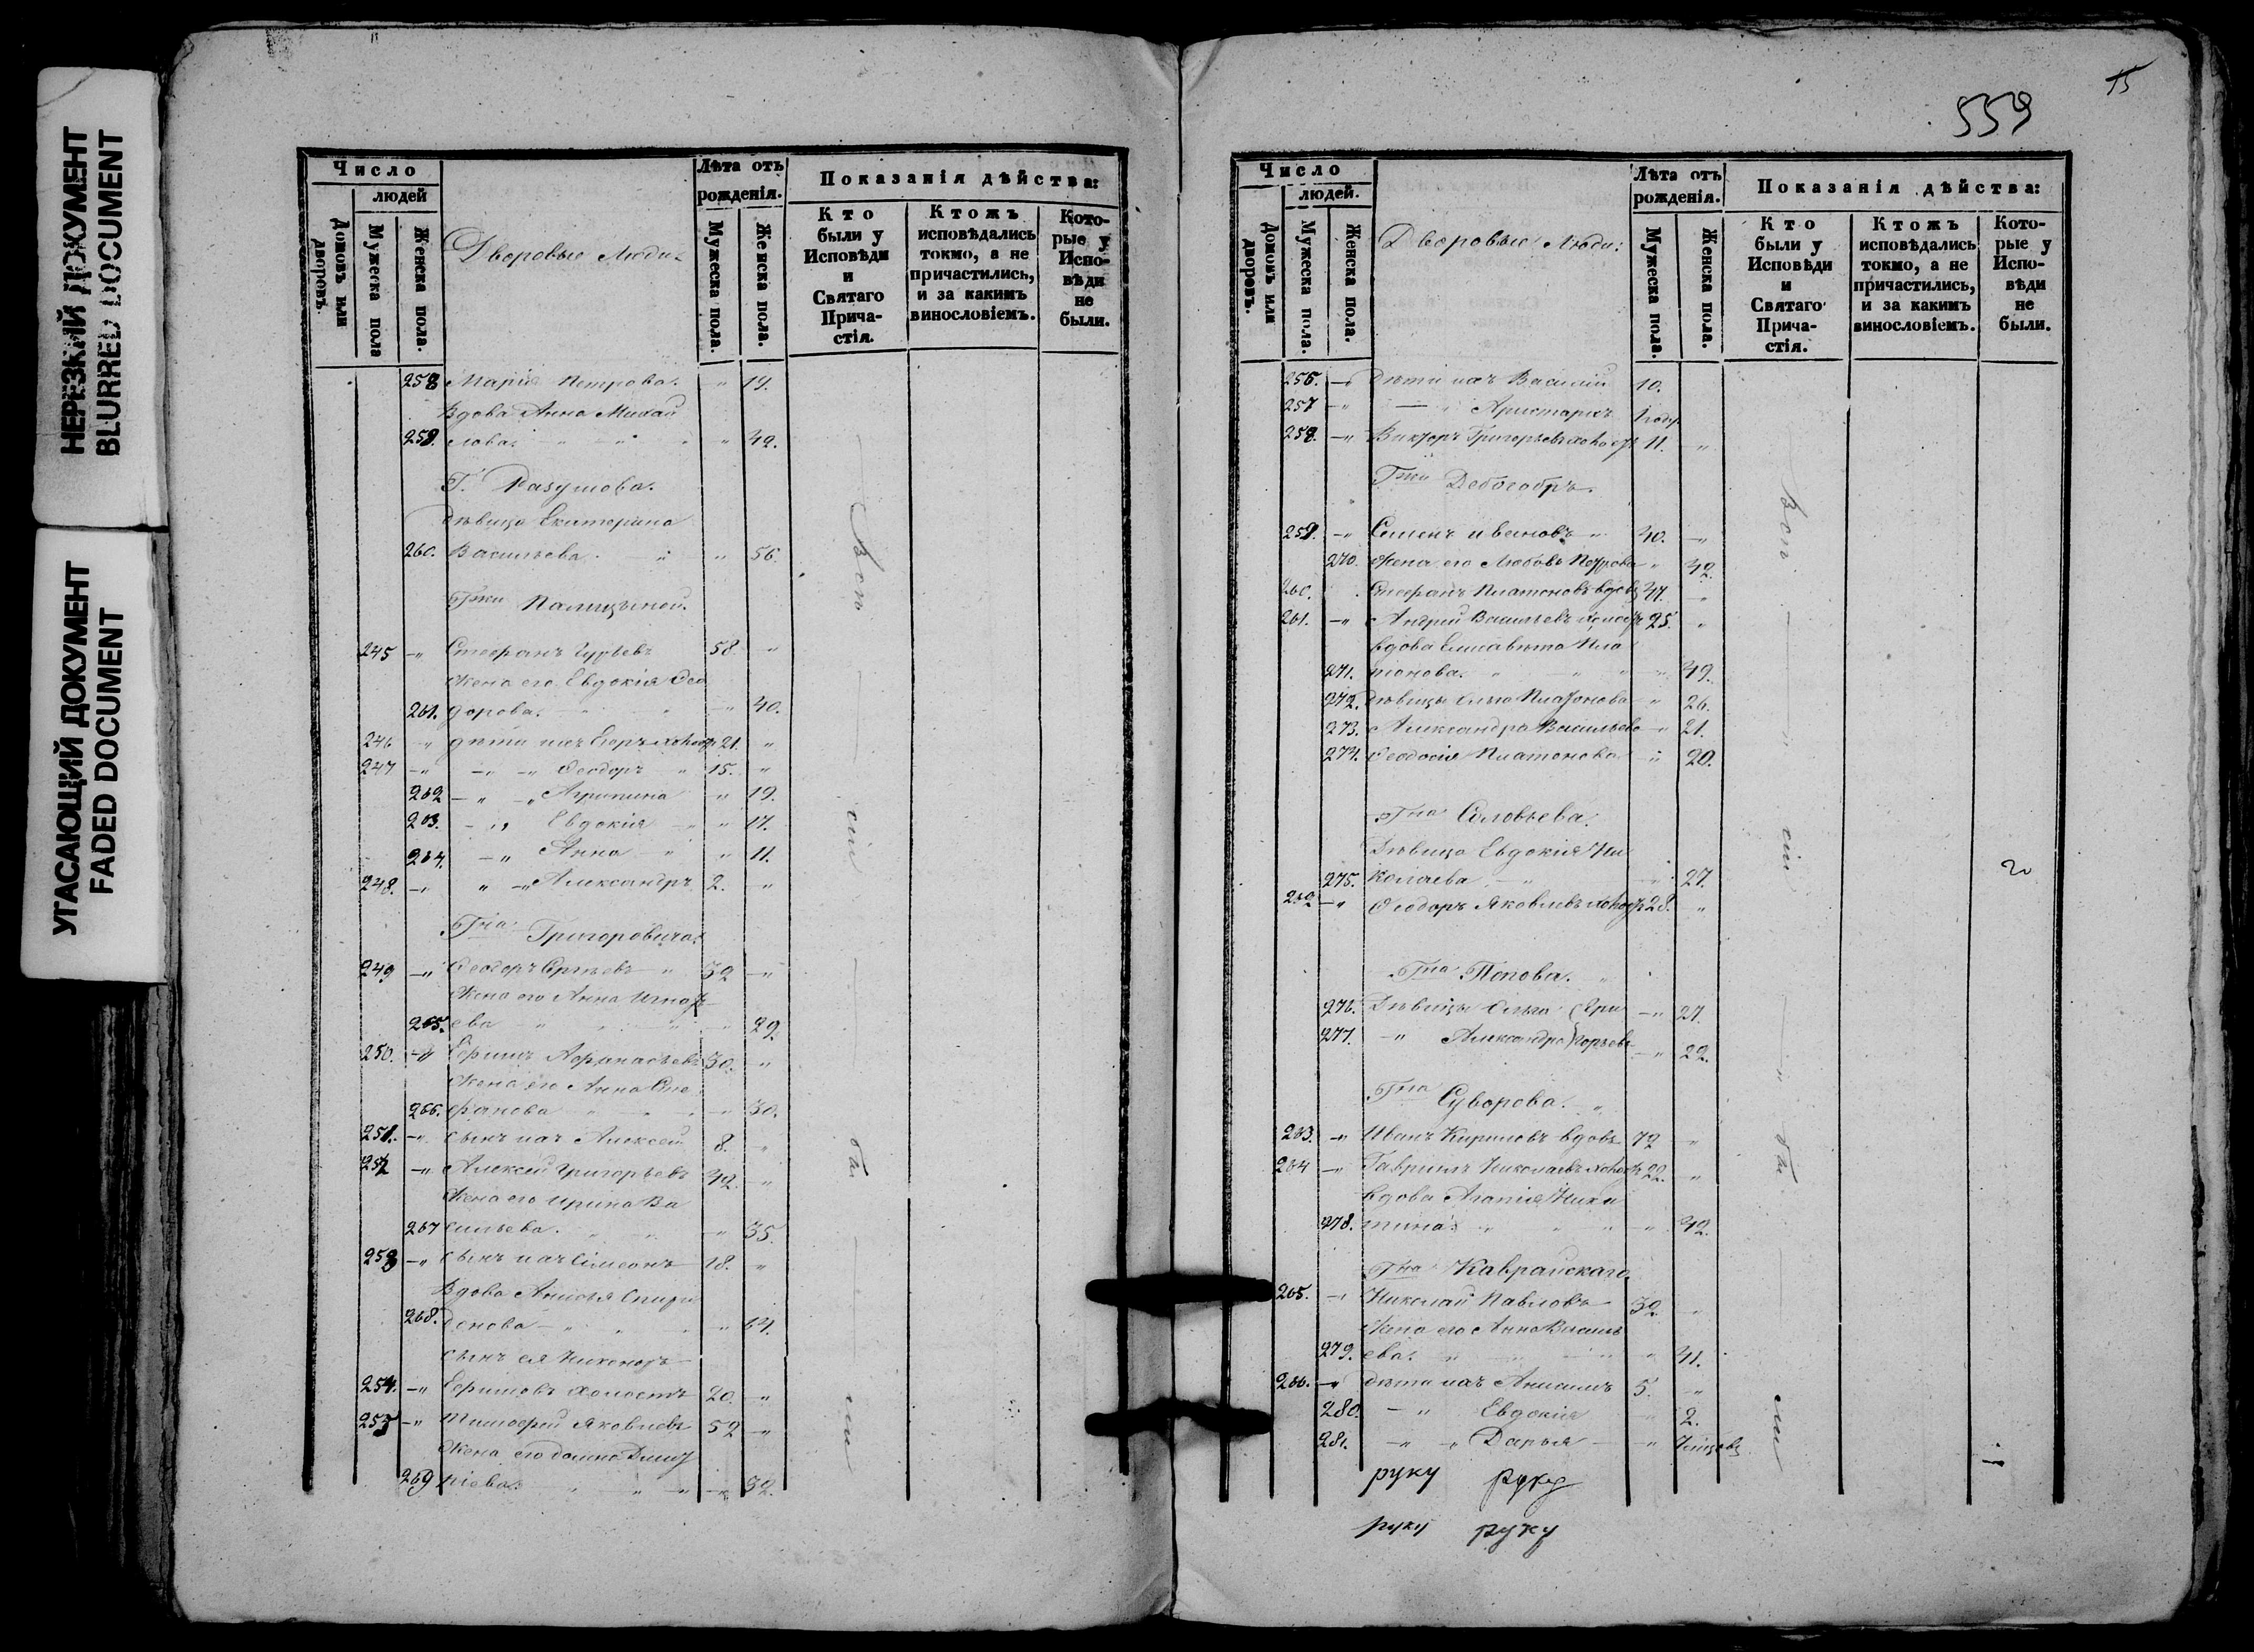 НЕРЕЗКИЙ ДОКУМЕНТ
BLURRED DOCUMENT
УГАСАЮЩИЙ ДОКУМЕНТ
FADED DOCUMENT
Число
людей
Домовъ или дворовъ.
Мужеска пола
Женска пола.
Дворовые Люди:
Лѣта отъ рожденія.
Мужеска пола.
Женска пола.
Показанія дѣйства:
Кто были у Исповѣди и Святаго Прича-стія.
Ктожъ исповѣдались токмо, а не причастились, и за какимъ винословіемъ.
Кото-рые у Испо-вѣди не были.
258 Марія Петрова. " 19.
Вдова Анна Михай
259. лова. " 42.
Г. Разумова.
дѣвица Екатерина
260. Васильева. " 56.
Гжи Палицыной.
245 " Стефанъ Гурьевъ 58 "
Жена его Евдокія Ѳео
261. дорова. " 40.
246 " дѣти ихъ Егоръ холост 21. "
247 " Ѳеодоръ " 15. "
262 " Агрипина " 19.
263. " Евдокія " 17.
264. " Анна " 11.
248. " Александръ 2. "
Гна Григоровича.
249 " Ѳеодоръ Сергѣевъ " 32 "
Жена его Анна Игнать
265. ева " 29.
250. " Ефимъ Афанасьевъ 30. "
Жена его Анна Сте
266. фанова " 30.
251. " сынъ ихъ Алексей 8. "
252 " Алексей Григорьевъ 42. "
Жена его Ирина Ва
267 сильева. " 35.
253 " сынъ ихъ Симеонъ 18. "
Вдова Анисья Спири
268. донова " 64.
сынъ ея Никаноръ
254. " Ефимовъ холостъ 20. "
255 " Тимофей Яковлевъ 52 "
Жена его Домна Дмит
269 ріева. " 32.
Бы
ли
15
559
Число
людей.
Домовъ или дворовъ.
Мужеска пола.
Женска пола.
Дворовые Люди:
Лѣта отъ рожденія.
Мужеска пола.
Женска пола.
Показанія дѣйства:
Кто были у Исповѣди и Святаго Прича-стія.
Ктожъ исповѣдались токмо, а не причастились, и за какимъ винословіемъ.
Кото-рые у Испо-вѣди не были.
256. " дѣти ихъ Василій 10.
257 " Аристархъ 1 году
258. " Викторъ Григорьевъ холост 11. "
Гжи
259. " Семенъ Ивановъ " 40. "
270. Жена его Любовь Петрова " 42.
260. Стефанъ Платоновъ вдовъ 47. "
261. " Андрей Васильевъ холост 25. "
вдова Елисавета Пла
271. тонова. " 49.
272. дѣвицы Ольга Платонова " 26.
273. Александра Васильева " 21.
274. Ѳеодосія Платонова " 20.
Гна Соловьева.
Дѣвица Евдокія Ни
275. колаева " 27.
262 " Ѳеодоръ Яковлевъ холост 28. "
Гна Попова. "
276. Дѣвицы Ольга Гри " 27.
277. " Александра горьевы " 22.
Гна Суворова. "
263. " Иванъ Кириловъ вдовъ 72 "
264 " Гавріилъ Николаевъ холост 22. "
вдова Агапія Ники
278. тина. " 42.
Гна Каврайскаго.
265. " Николай Павловъ 32. "
Жена его Анна Василь
279. ева. " 41.
266. " дѣти ихъ Анисимъ 5. "
280. " Евдокія " 2.
281. " Дарья "
Бы
ли
руку руку
руку руку